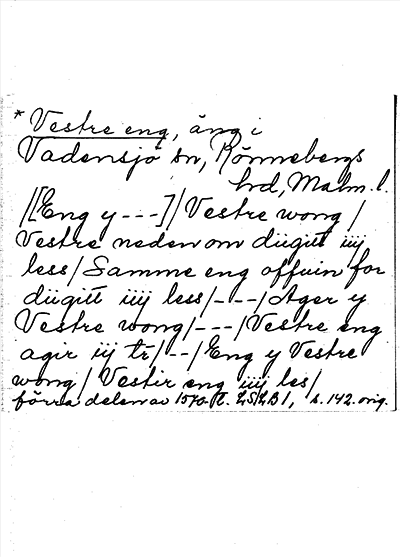 * Vestre eng, äng i
Vadensjö sn, Rönnebergs
hrd, Malm. l.
/[Eng y ---]/Vestre wong/
Vestre neden om diigitt iiij
less/Samme eng offuin for
diigitt iiij less/---/Ager y
Vestre wong/---/Vestre eng
agir iij tr/--/Eng y Vestre
wong/Vestir eng iiij les/
förra delen av 1570-t. LSLB1, s. 142. orig.